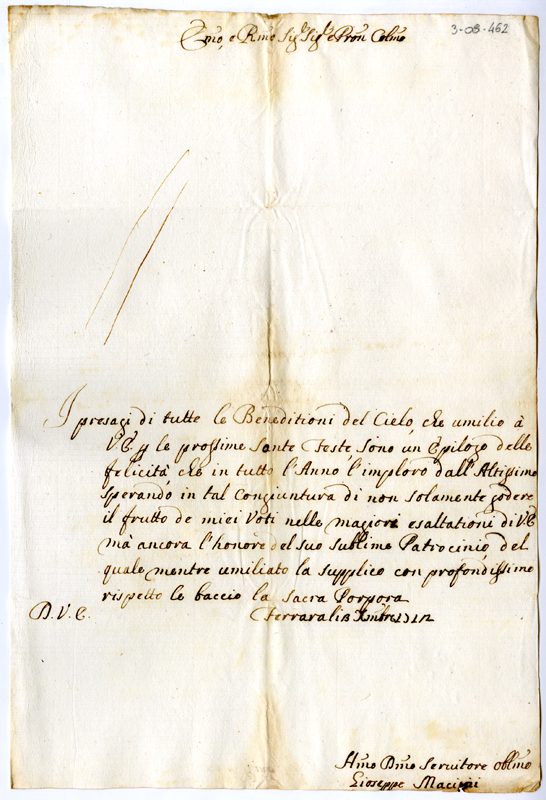 Emo, e Rmo Sigre Sigre e Pron Colmo
3-08-462
I presagi di tutte le Beneditioni del Cielo, che umilio à
V.E. p le prossime Sante Feste, sono un Epilogo delle
felicità, che in tutto l'Anno l'imploro dall'Altissimo
sperando in tal Congiuntura di non solamente godere
il frutto de miei Voti nelle magiori esaltationi di V.E.
mà ancora l'honore del suo sublime Patrocinio, del
quale mentre umiliato la supplico con profondissimo
rispetto le baccio la Sacra Porpora
D. V. E. Ferrara li Xmbre
Hmo Dmo Servitore Obllmo
Gioseppe